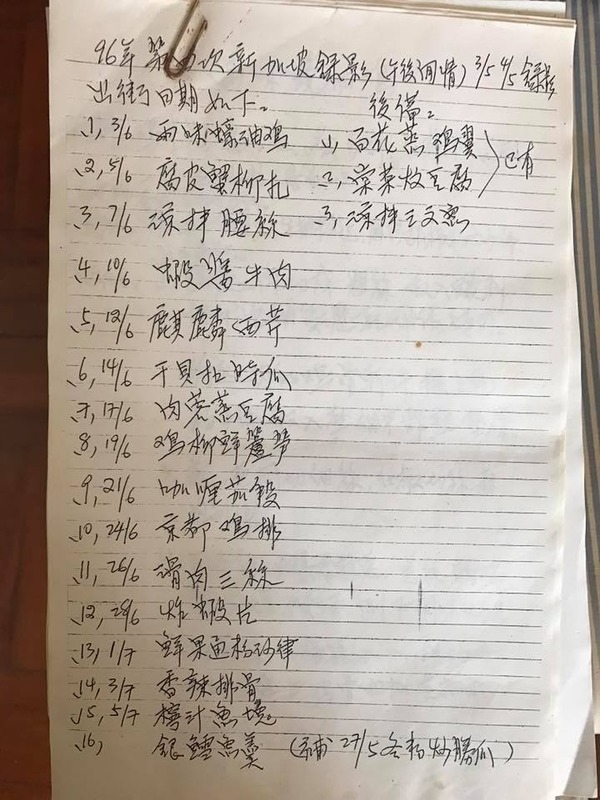 96年第四次新加坡錄影(午後閒情) 3/5 4/5 錄影
出街日期如下。 後備。
1, 3/6 兩味蠔油鸡 1, 百花蒸鸡翼
2, 5/6 腐皮蟹柳扎 2, 棠菜炆豆腐 已有
3, 7/6 凉拌腰絲 3, 凉拌三文魚
4, 10/6 虾醬牛肉
5, 12/6 麒麟西芹
6, 14/6 干貝扣時瓜
7, 17/6 肉蓉蒸豆腐
8, 19/6 鸡柳鮮蘆筍
9, 21/6 咖喱茄
10, 24/6 京都鸡排
11, 26/6 滑肉三絲
12, 28/6 炸虾片
13, 1/7 鮮果通粉沙律
14, 3/7 香辣排骨
15, 5/7 檸汁魚塊
16, 銀鱈魚羹 (補 27/5 冬粉炒勝瓜)